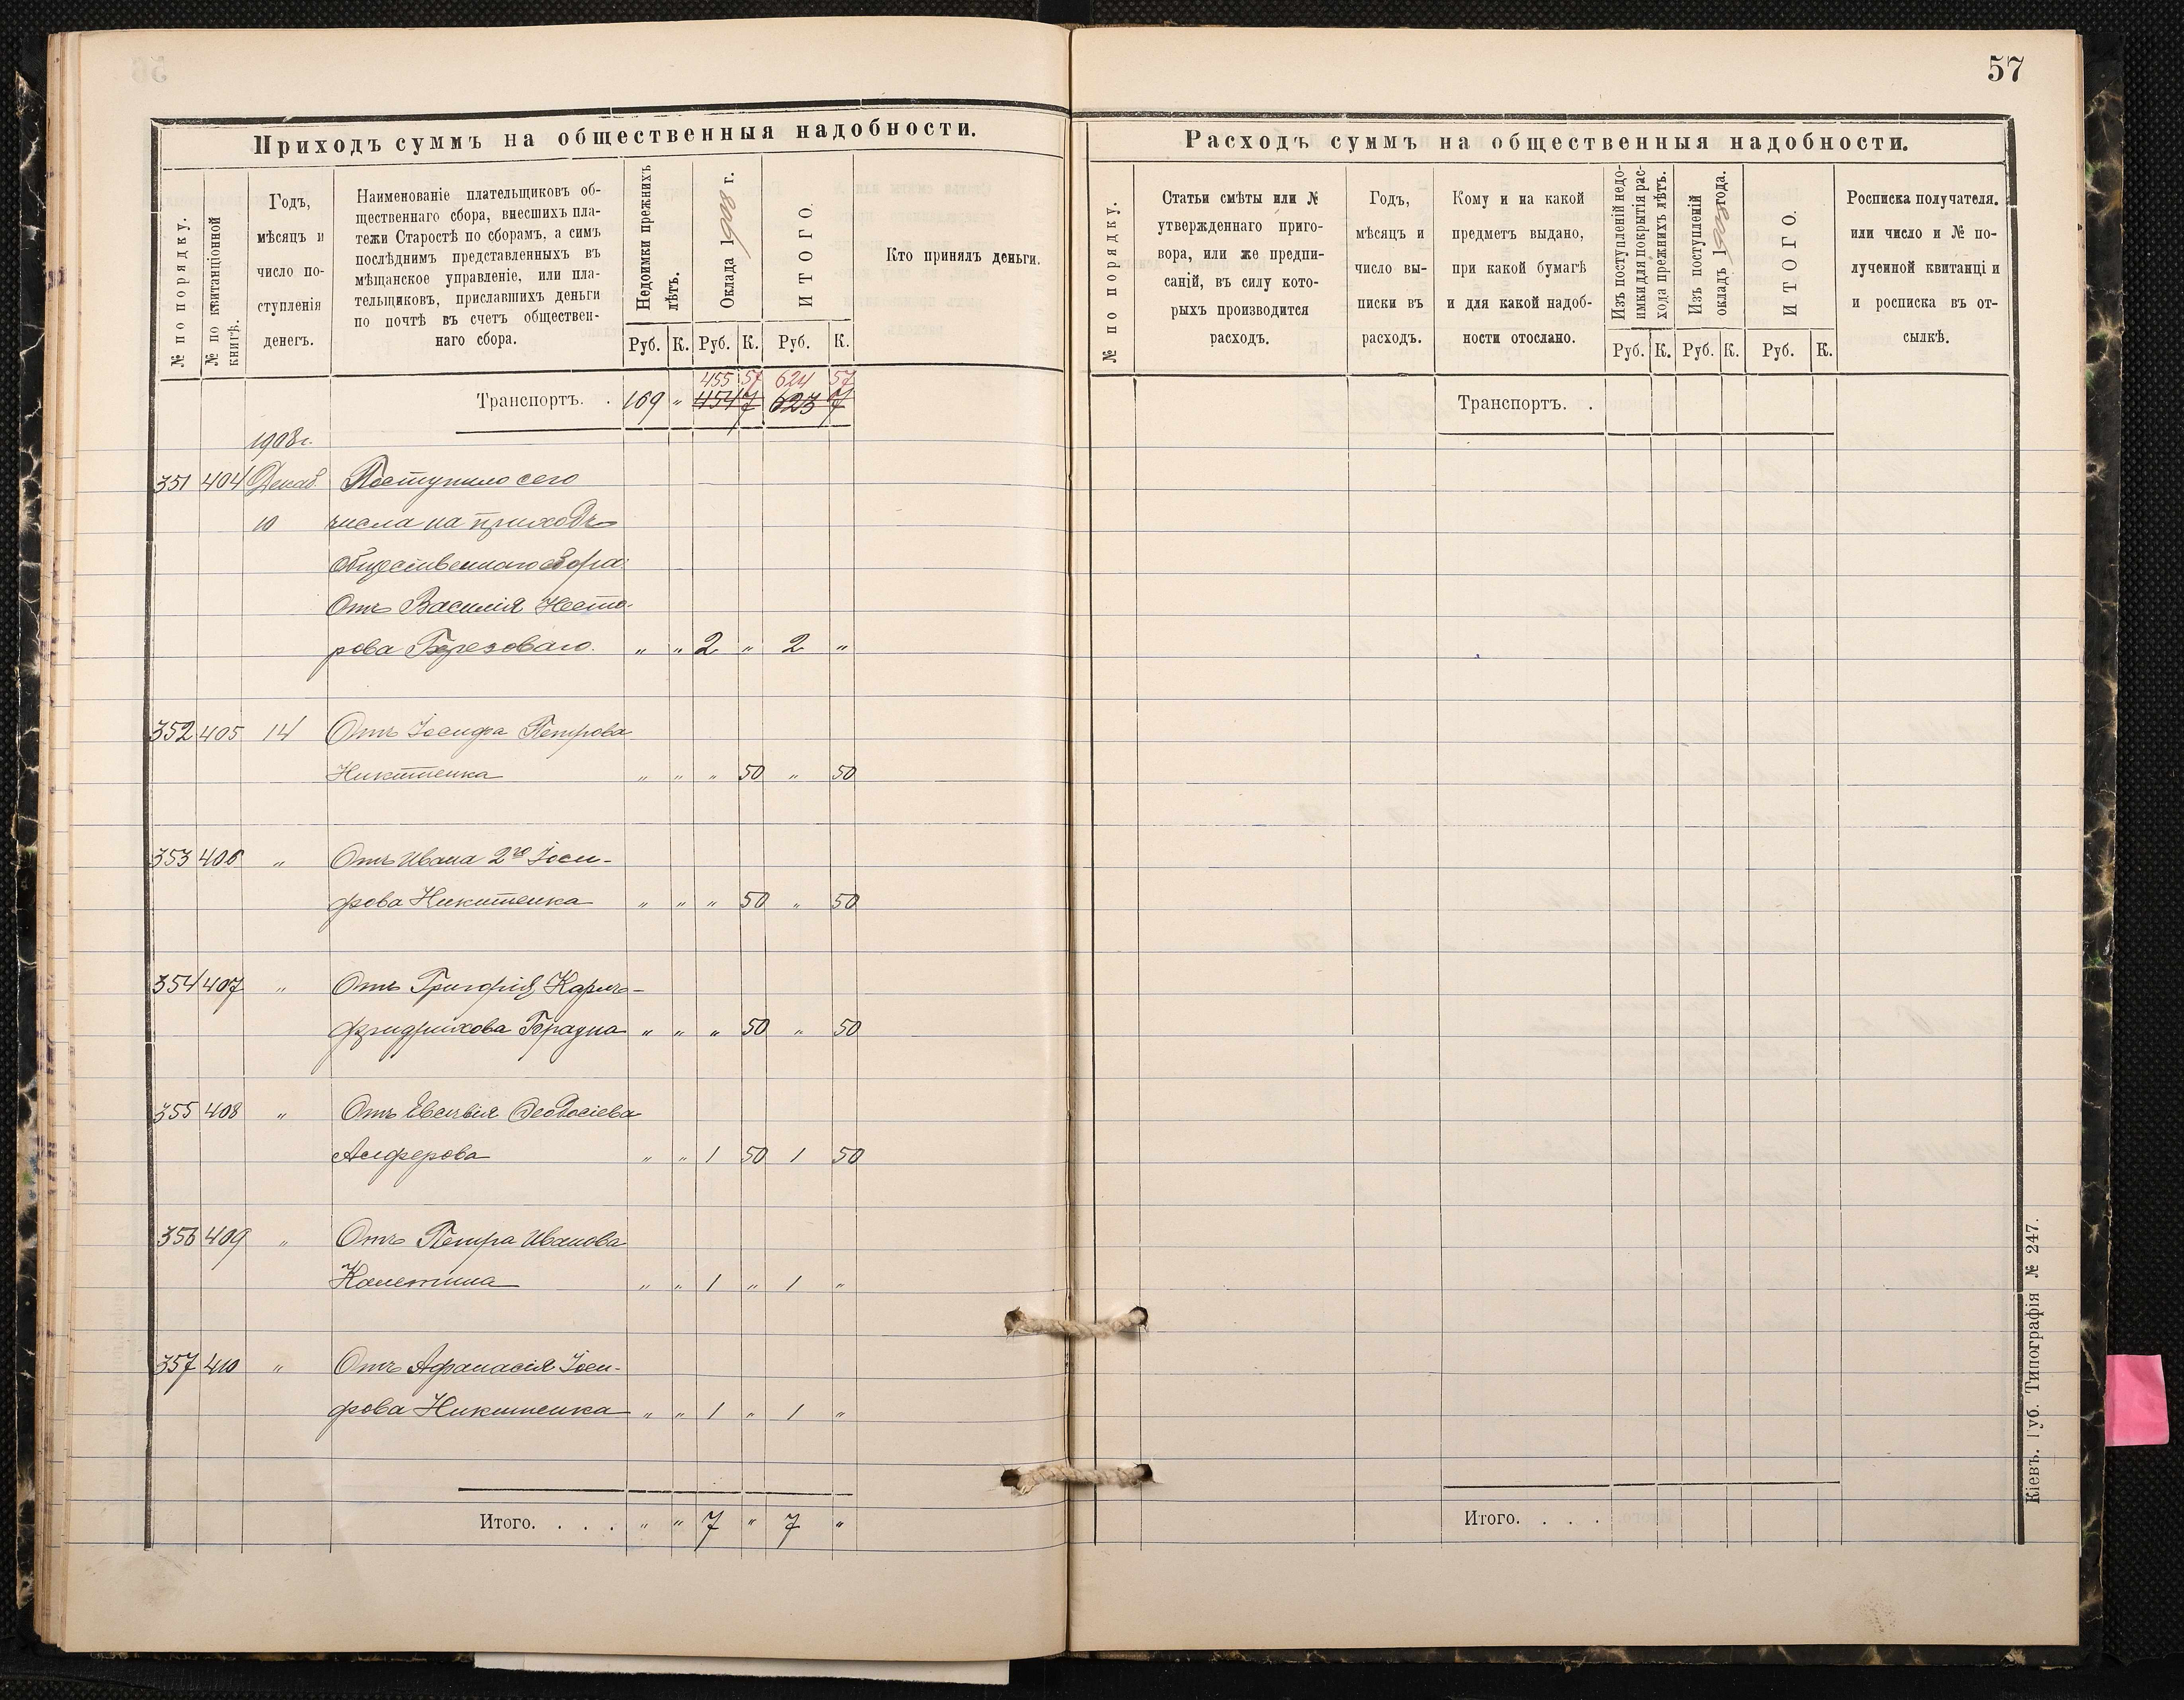 57
Приходъ суммъ на общественныя надобности.
№ по порядку.
№ по квитанціонной
книгѣ.
Годъ,
мѣсяцъ и
число по-
ступленія
денегъ.
Наименованіе плательщиковъ об-
щественнаго сбора, внесшихъ пла-
тежи Старостѣ по сборамъ, а симъ
послѣднимъ представленныхъ въ
мѣщанское управленіе, или пла-
тельщиковъ, приславшихъ деньги
по почтѣ въ счетъ обществен-
наго сбора.
Недоимки прежнихъ
лѣтъ.
Оклада 1908 г.
ИТОГО.
Кто принялъ деньги.
Руб. К. Руб. К. Руб. К.
455 57 624 57
Транспортъ. . 169 „ 454 7 623 7
1908 г.
351 404 Декаб. Поступило сего
10 числа на приходъ
общественнаго сбора:
Отъ Василія Несто-
рова Березоваго. „ „ 2 „ 2 „
352 405 14 Отъ Іосифа Петрова
Никитенка „ „ „ 50 „ 50
353 406 „ Отъ Ивана 2го Іоси-
фова Никитенка „ „ „ 50 „ 50
354 407 „ Отъ Григорія Карлъ-
Фридрихова Брауна „ „ „ 50 „ 50
355 408 „ Отъ Евсевія Феодосіева
Алферова „ „ 1 50 1 50
356 409 „ Отъ Петра Иванова
Калетина „ „ 1 „ 1 „
357 410 „ Отъ Афанасія Іоси-
фова Никитенка „ „ 1 „ 1 „
Итого. . . . „ „ 7 „ 7 „
Расходъ суммъ на общественныя надобности.
№ по порядку.
Статьи смѣты или №
утвержденнаго приго-
вора, или же предпи-
саній, въ силу кото-
рыхъ производится
расходъ.
Годъ,
мѣсяцъ и
число вы-
писки въ
расходъ.
Кому и на какой
предметъ выдано,
при какой бумагѣ
и для какой надоб-
ности отослано.
Изъ поступленій недо-
имки для покрытія рас-
хода прежнихъ лѣтъ.
Изъ поступленій
окладъ 1908 года.
ИТОГО.
Росписка получателя.
или число и № по-
лученной квитанціи
и росписка въ от-
сылкѣ.
Руб. К. Руб. К. Руб. К.
Транспортъ. .
Итого. . . .
Кіевъ. Губ. Типографія № 247.